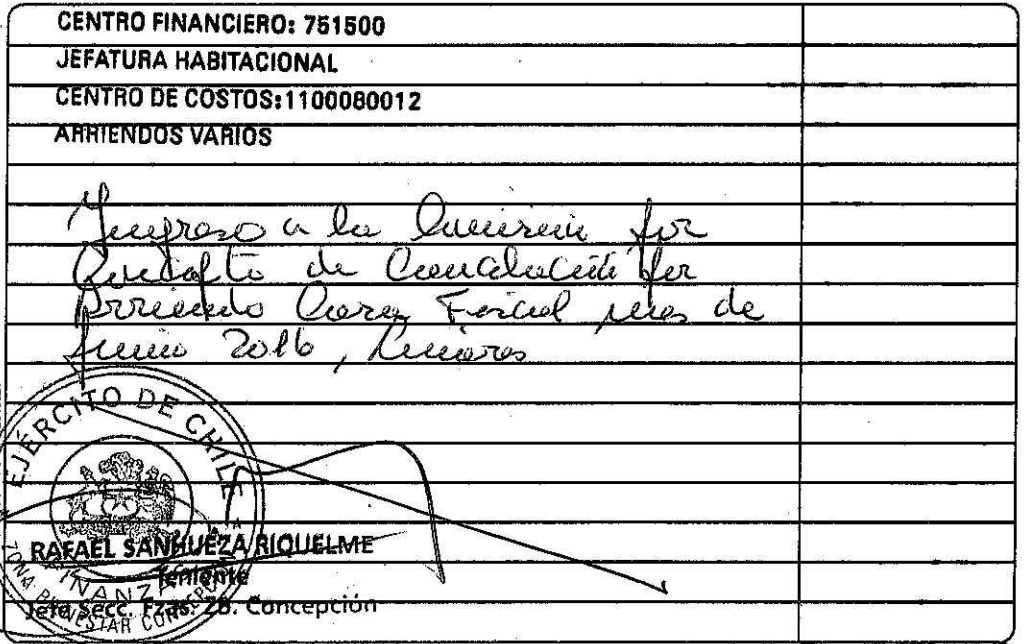 CENTRO FINANCIERO: 751500
JEFATURA HABITACIONAL
CENTRO DE COSTOS:1100080012
ARRIENDOS VARIOS
Ingreso a la por
de por
Arriendo Casa Fiscal mes de
Junio 2016, Linares
EJÉRCITO DE CHILE
RAFAEL SANHUEZA RIQUELME
Teniente
FINANZAS
Jefe Secc. Fzas. ZB. Concepción
ZONA BIENESTAR CONCEP